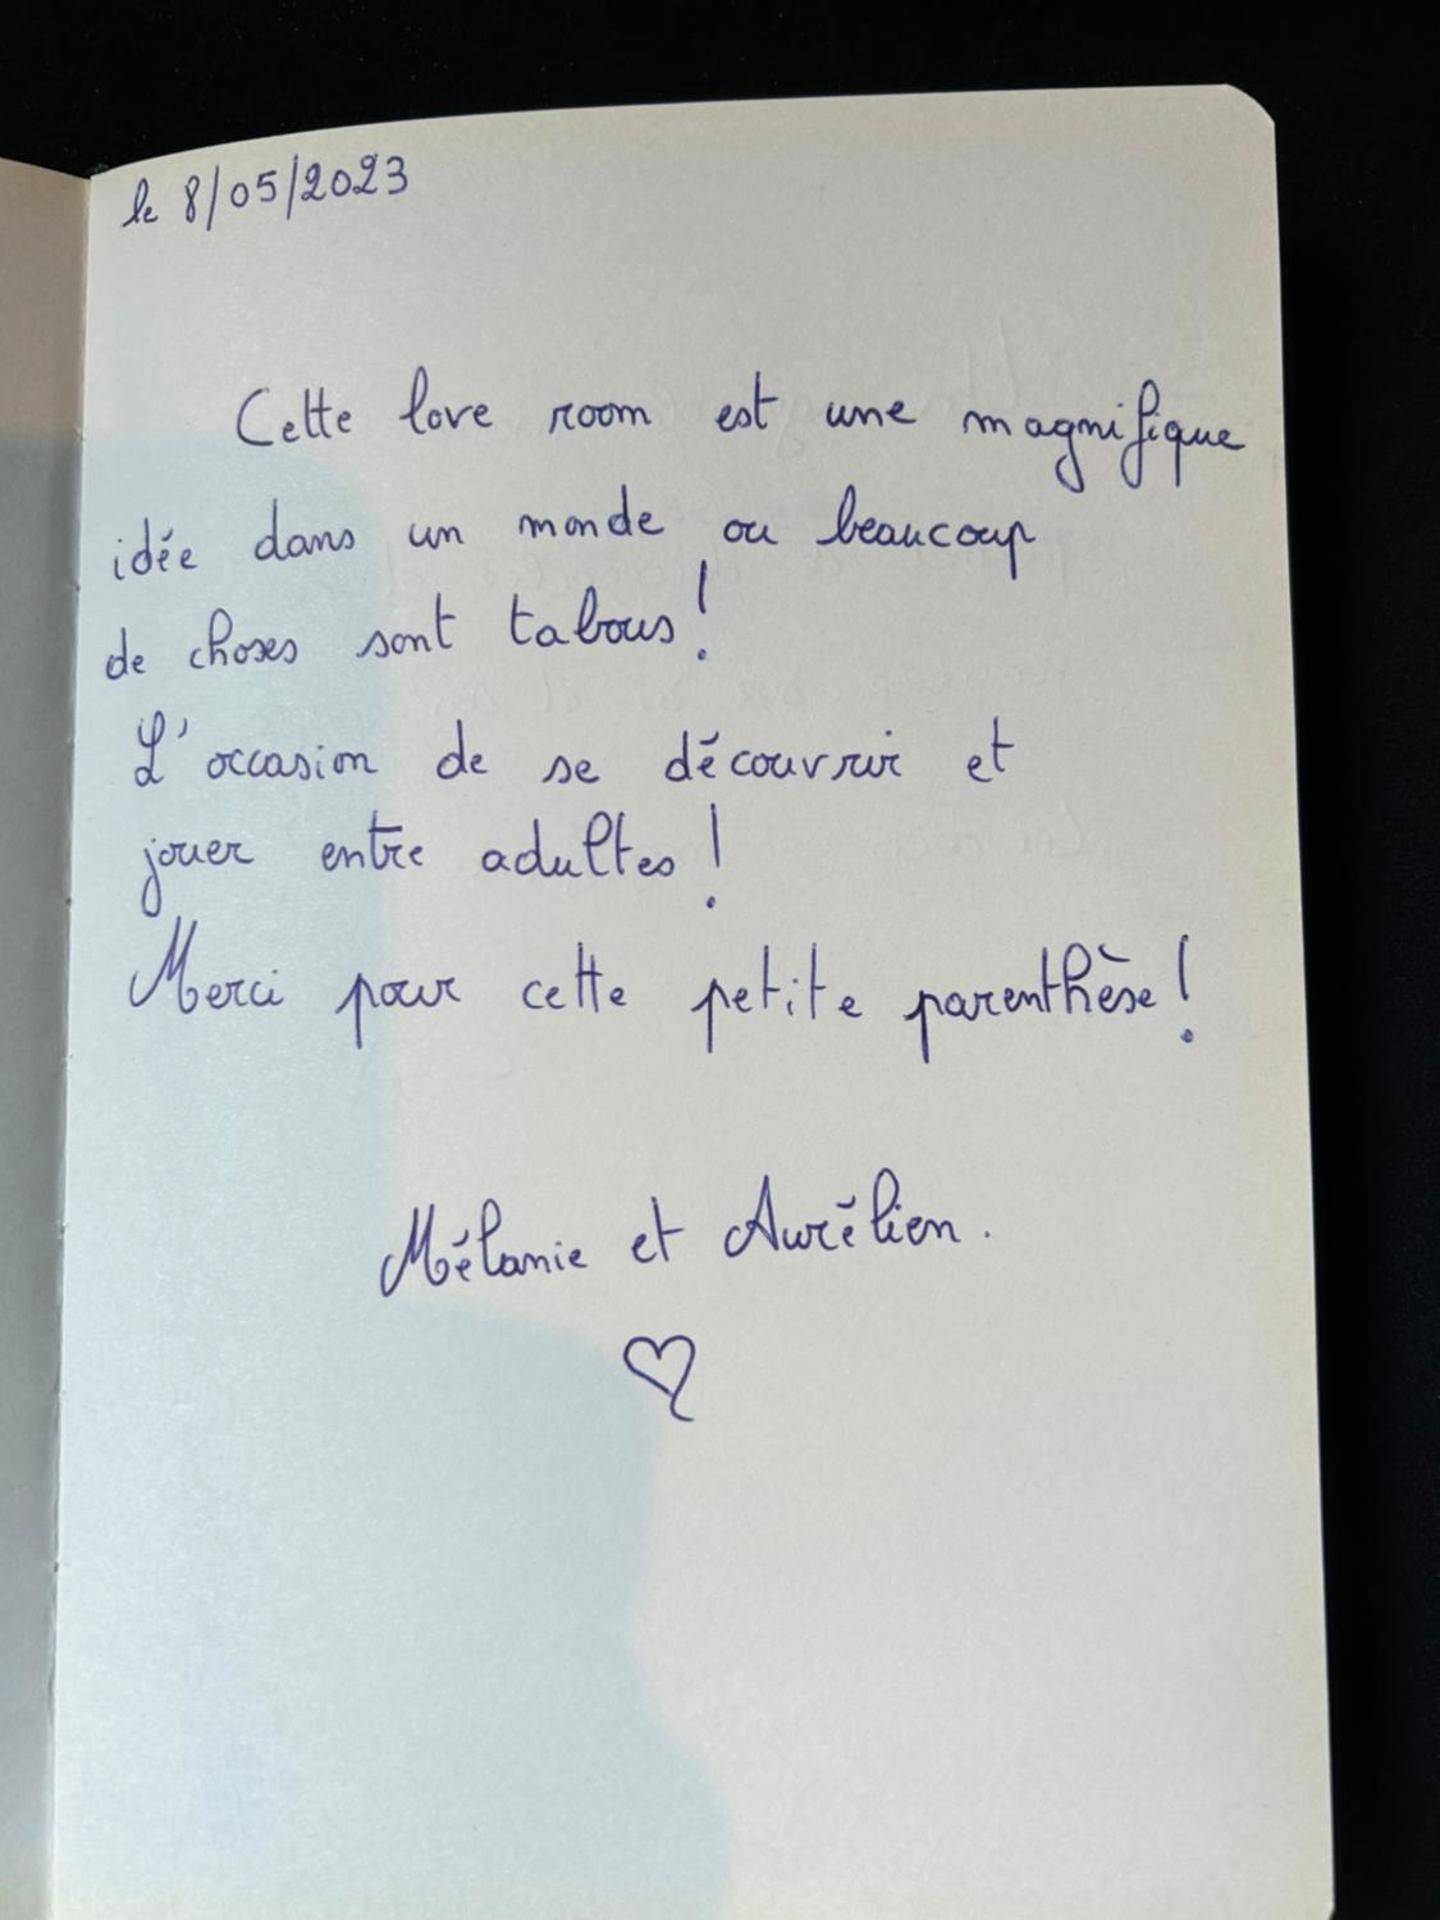 le 8/05/2023
Cette love room est une magnifique
idée dans un monde ou beaucoup
de choses sont tabous !
L'occasion de se découvrir et
jouer entre adultes !
Merci pour cette petite parenthèse !
Mélanie et Aurélien.